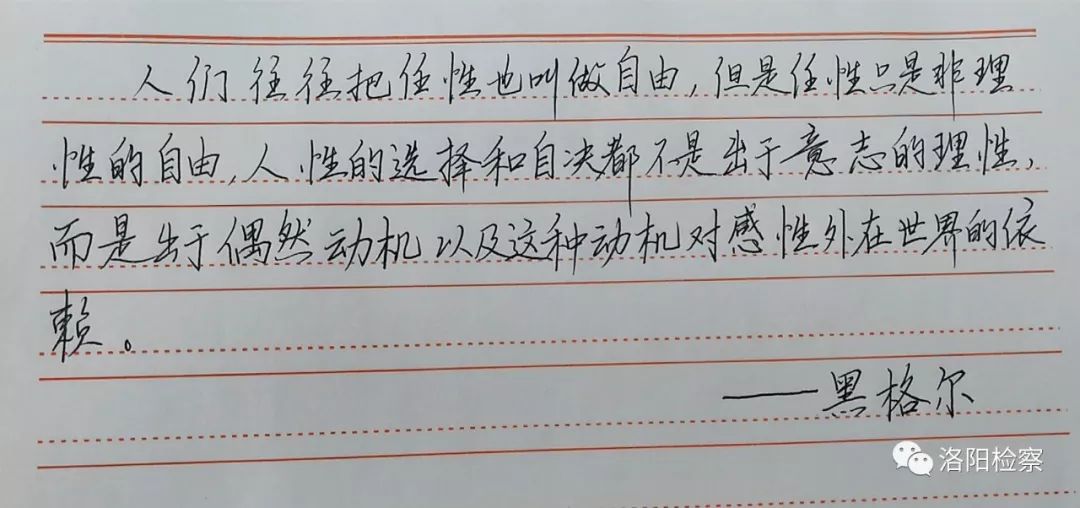 人们往往把任性也叫做自由,但是任性只是非理
性的自由,人性的选择和自决都不是出于意志的理性,
而是出于偶然动机以及这种动机对感性外在世界的依
赖。
——黑格尔
洛阳检察